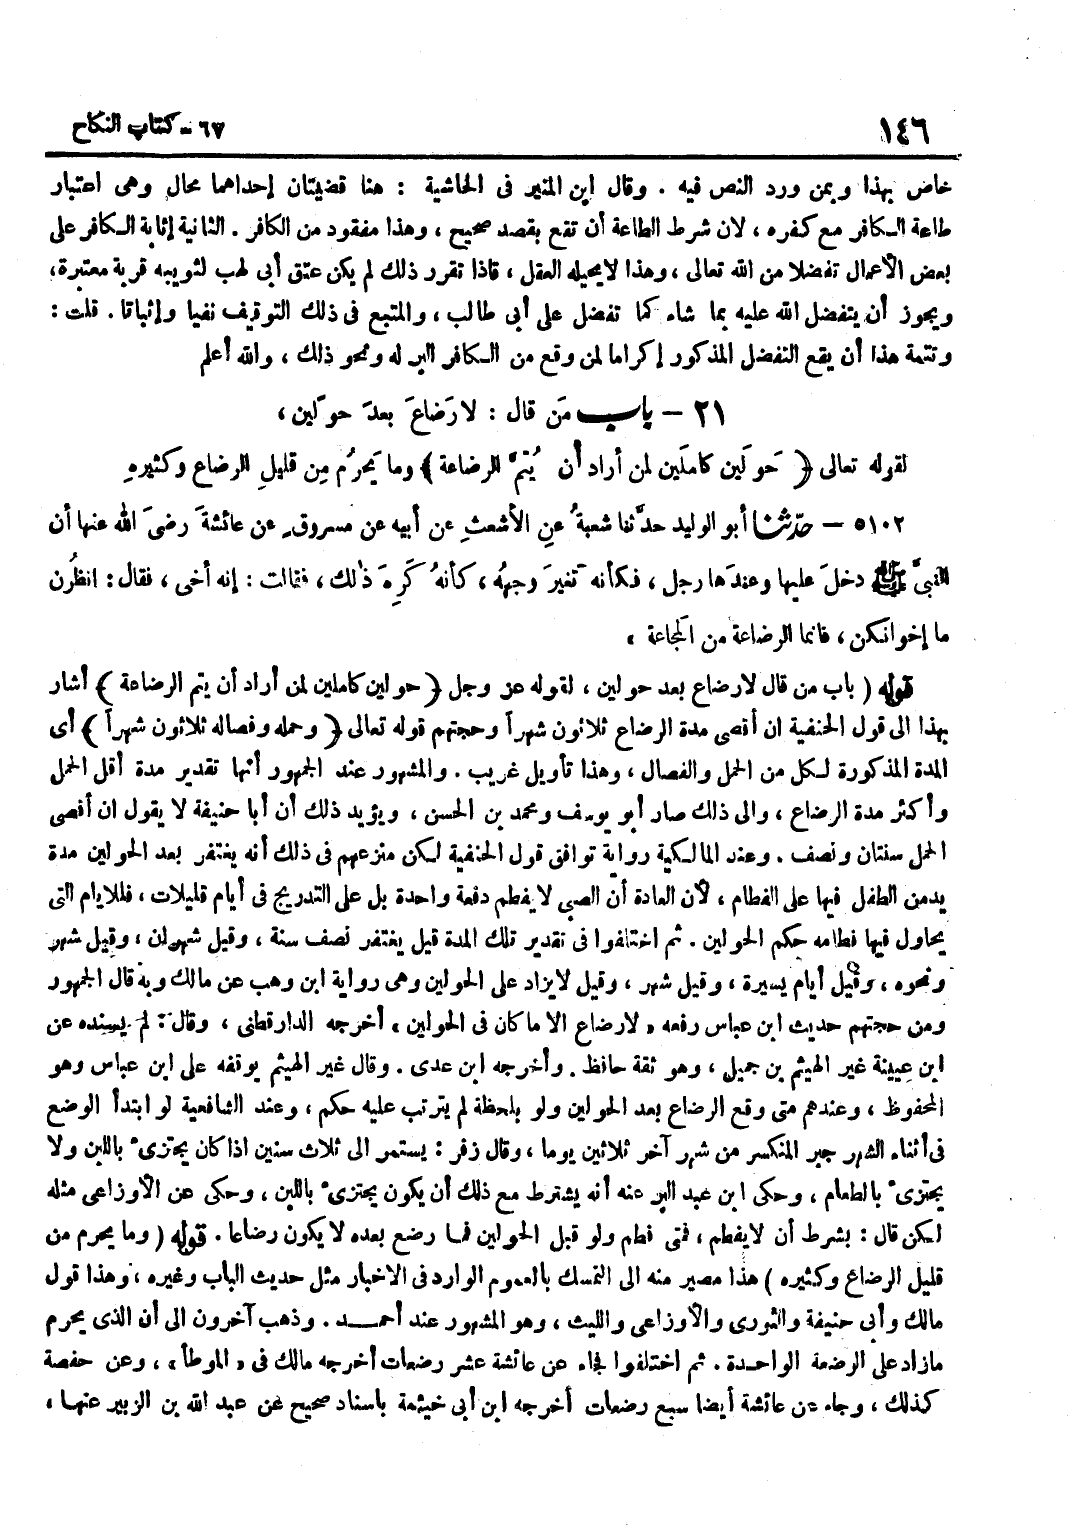 ١٤٦
٦٧ - كتاب النكاح
خاص بهذا وبمن ورد النص فيه . وقال ابن المنير فى الحاشية : هنا قضيتان إحداهما محال وهى اعتبار
طاعة الكافر مع كفره ، لان شرط الطاعة أن تقع بقصد صحيح ، وهذا مفقود من الكافر . الثانية إثابة الكافر على
بعض الأعمال تفضلا من الله تعالى ، وهذا لا يحيله العقل ، فاذا تقرر ذلك لم يكن عتق أبى لهب لثويبة قربة معتبرة ،
ويجوز أن يتفضل الله عليه بما شاء كما تفضل على أبى طالب ، والمتبع فى ذلك التوقيف نفيا وإثباتا . قلت :
وتتمة هذا أن يقع التفضل المذكور إكراما لمن وقع من الكافر البر له ونحو ذلك ، والله أعلم
٢١ - باب مَن قال : لا رَضاعَ بعدَ حولَين ،
لقوله تعالى ﴿ حَولَين كاملَين لمن أراد أن يُتمَّ الرضاعة ﴾ وما يَحرُم مِن قليلِ الرضاع وكثيرهِ
٥١٠٢ - حدّثنا أبو الوليد حدَّثنا شعبةُ عنِ الأشعثِ عن أبيه عن مسروقٍ عن عائشةَ رضىَ الله عنها أن
النبىَّ ﷺ دخلَ عليها وعندَها رجل ، فكأنه تَغيرَ وجههُ ، كأنهُ كَرِهَ ذٰلك ، فقالت : إنه أخى ، فقال : انظُرن
ما إخوانكن ، فانما الرضاعة من المَجاعة »
قوله ( باب من قال لا رضاع بعد حولين ، لقوله عز وجل ﴿ حولين كاملين لمن أراد أن يتم الرضاعة ﴾ أشار
بهذا الى قول الحنفية ان أقصى مدة الرضاع ثلاثون شهراً وحجتهم قوله تعالى ﴿ وحمله وفصاله ثلاثون شهراً ﴾ أى
المدة المذكورة لكل من الحمل والفصال ، وهذا تأويل غريب . والمشهور عند الجمهور أنها تقدير مدة أقل الحمل
وأكثر مدة الرضاع ، والى ذلك صار أبو يوسف ومحمد بن الحسن ، ويؤيد ذلك أن أبا حنيفة لا يقول ان أقصى
الحمل سنتان ونصف . وعند المالكية رواية توافق قول الحنفية لكن منزعهم فى ذلك أنه يغتفر بعد الحولين مدة
يدمن الطفل فيها على الفطام ، لأن العادة أن الصبى لا يفطم دفعة واحدة بل على التدريج فى أيام قليلات ، فللايام التى
يحاول فيها فطامه حكم الحولين . ثم اختلفوا فى تقدير تلك المدة قيل يغتفر نصف سنة ، وقيل شهران ، وقيل شهر
ونحوه ، وقيل أيام يسيرة ، وقيل شهر ، وقيل لا يزاد على الحولين وهى رواية ابن وهب عن مالك وبه قال الجمهور
ومن حجتهم حديث ابن عباس رفعه « لا رضاع الا ما كان فى الحولين » أخرجه الدارقطنى ، وقال : لم يسنده عن
ابن عيينة غير الهيثم بن جميل ، وهو ثقة حافظ . وأخرجه ابن عدى . وقال غير الهيثم يوقفه على ابن عباس وهو
المحفوظ ، وعندهم متى وقع الرضاع بعد الحولين ولو بلحظة لم يترتب عليه حكم ، وعند الشافعية لو ابتدأ الوضع
فى أثناء الشهر جبر المنكسر من شهر آخر ثلاثين يوما ، وقال زفر : يستمر الى ثلاث سنين اذا كان يجتزىء باللبن ولا
يجتزىء بالطعام ، وحكى ابن عبد البر عنه أنه يشترط مع ذلك أن يكون يجتزىء باللبن ، وحكى عن الأوزاعى مثله
لكن قال : بشرط أن لا يفطم ، فمتى فطم ولو قبل الحولين فما رضع بعده لا يكون رضاعا . قوله ( وما يحرم من
قليل الرضاع وكثيره ) هذا مصير منه الى التمسك بالعموم الوارد فى الاخبار مثل حديث الباب وغيره ، وهذا قول
مالك وأبى حنيفة والثورى والأوزاعى والليث ، وهو المشهور عند أحمد . وذهب آخرون الى أن الذى يحرم
ما زاد على الرضعة الواحدة . ثم اختلفوا فجاء عن عائشة عشر رضعات أخرجه مالك فى « الموطأ » ، وعن حفصة
كذلك ، وجاء عن عائشة أيضا سبع رضعات أخرجه ابن أبى خيثمة باسناد صحيح عن عبد الله بن الزبير عنها ،